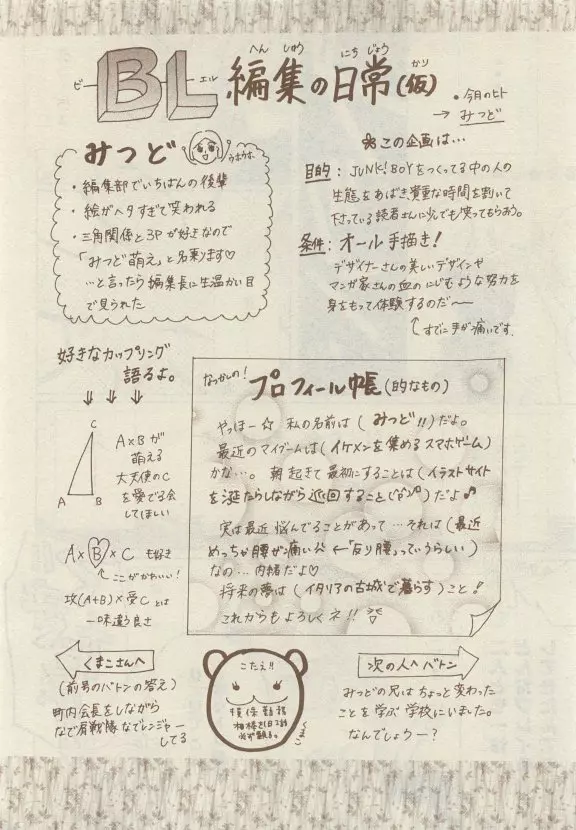 BL編集の日常(仮)
ビー エル へんしゅう にちじょう かり
・今月のヒト
→ みつど
みつど
ウホウホ
・編集部でいちばんの後輩
・絵がヘタすぎて笑われる
・三角関係と3Pが好きなので
「みつど萌え」と名乗ります♡
…と言ったら編集長に生温かい目
で見られた
❀この企画は…
目的:JUNK!BOYをつくってる中の人の
生態をあばき貴重な時間を割いて
下さっている読者さんに少しでも笑ってもらおう。
条件:オール手描き!
デザイナーさんの美しいデザインや
マンガ家さんの血のにじむような努力を
身をもって体験するのだ〜
↑すでに手が痛いです。
好きなカップリング
語るよ。
⇩ ⇩ ⇩
C
A B
A×Bが
萌える
大天使のC
を愛でる会
してほしい
A×B×C も好き
↑ここがかわいい!
攻(A+B)×受C とは
一味違う良さ
なつかしの!
プロフィール帳(的なもの)
やっほー☆ 私の名前は(みつど!!)だよ。
最近のマイブームは(イケメンを集めるスマホゲーム)
かな…。朝起きて最初にすることは(イラストサイト
を涎たらしながら巡回すること)だよ♪
実は最近悩んでることがあって…それは(最近
めっちゃ腰が痛い ←「反り腰」っていうらしい)
なの…内緒だよ♡
将来の夢は(イタリアの古城で暮らす)こと!
これからもよろしくネ!!
くまこさんへ
(前号のバトンの答え)
町内会長をしながら
なで肩戦隊なでレンジャー
してる
こたえ!!
くまこ
次の人へバトン
みつどの兄はちょっと変わった
ことを学ぶ学校にいました。
なんでしょうー?